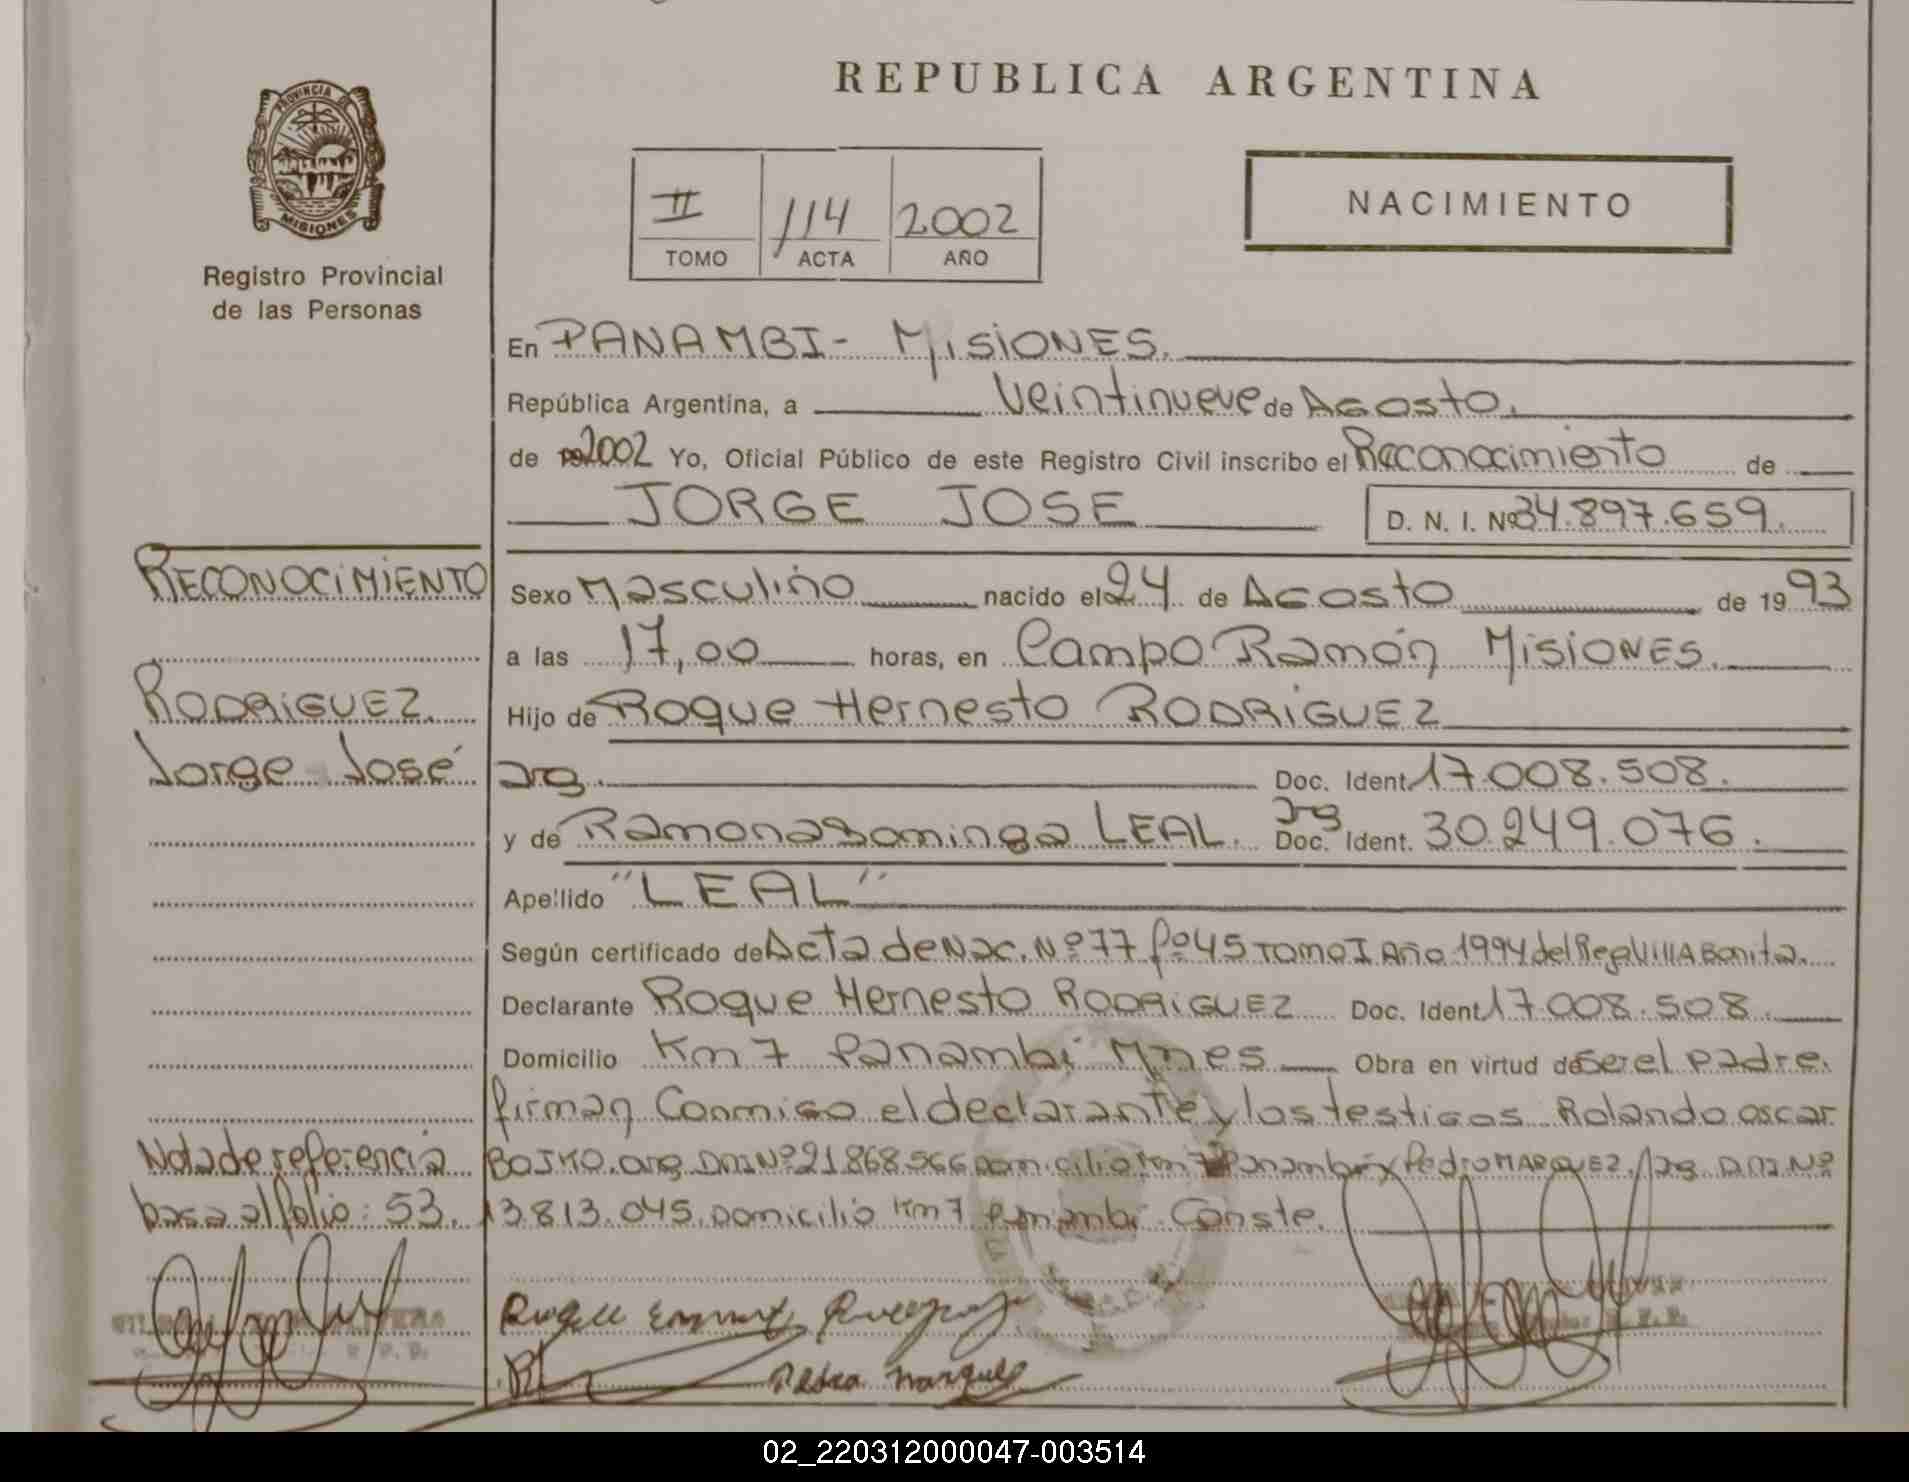 REPUBLICA ARGENTINA
PROVINCIA DE
MISIONES
Registro Provincial
de las Personas
II 114 2002
TOMO ACTA AÑO
NACIMIENTO
En PANAMBI- MISIONES.
República Argentina, a Veintinueve de Agosto.
de 2002 Yo, Oficial Público de este Registro Civil inscribo el Reconocimiento de
JORGE JOSE D. N. I. Nº 34.897.659.
RECONOCIMIENTO
Sexo Masculino nacido el 24 de Agosto de 1993
a las 17,00 horas, en Campo Ramón Misiones.
RODRIGUEZ
Jorge José
Hijo de Roque Hernesto RODRIGUEZ
arg. Doc. Ident. 17.008.508.
y de Ramona Dominga LEAL. arg Doc. Ident. 30.249.076.
Apellido "LEAL"
Según certificado de Acta de Nac. Nº 77 fº 45 Tomo I Año 1994 del Reg Villa Bonita.
Declarante Roque Hernesto RODRIGUEZ Doc. Ident 17.008.508.
Domicilio Km 7 Panambi Mnes Obra en virtud de Ser el padre.
firman Conmigo el declarante y los testigos Rolando oscar
BOJKO. arg. DNI Nº 21.868.566 Domicilio Km 7 Panambi y Pedro MARQUEZ, arg. D.N.I. Nº
13.813.045. Domicilio Km 7 Panambi. Conste.
Nota de referencia
pasa al folio: 53.
Pedro Marquez
02_220312000047-003514